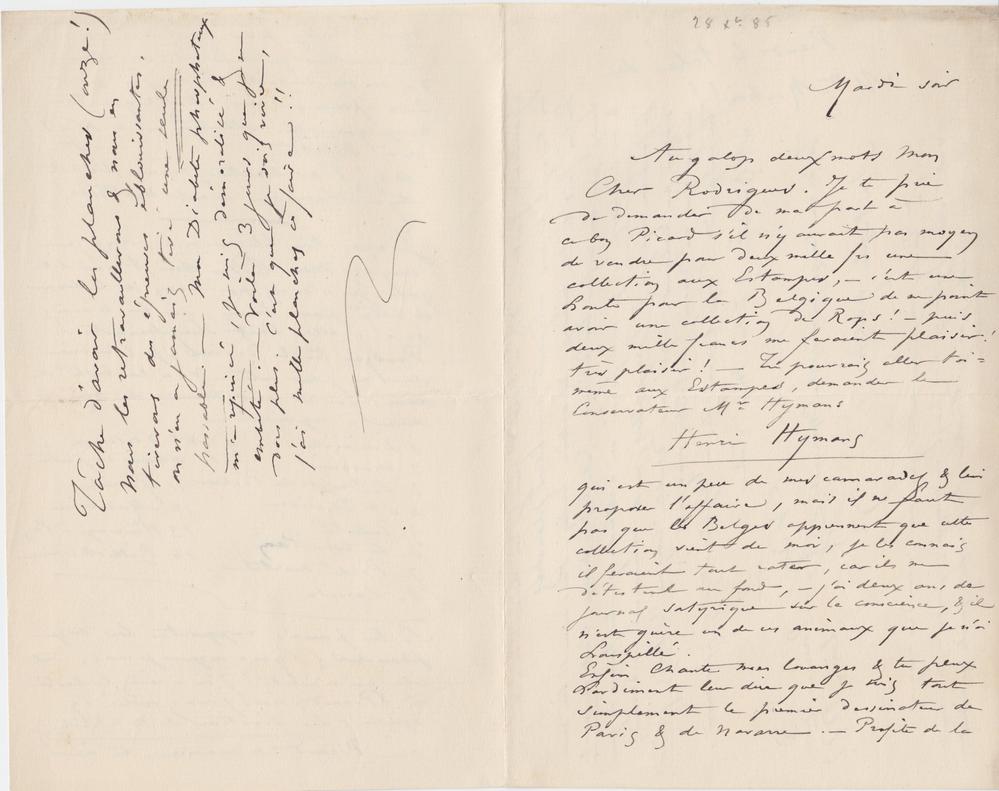 28 Xbre 85
Mardi soir
Au galop deux mots Mon
Cher Rodrigues. Je te prie
de demander de ma part à
ce bon Picard s'il n'y aurait pas moyen
de vendre pour deux mille frs une
collection aux Estampes, – c'est une
honte pour la Belgique de ne point
avoir une collection de Rops! – puis
deux mille francs me feraient plaisir!
très plaisir! – Tu pourrais aller toi=
même aux Estampes, demander le
Conservateur Mr Hymans
Henri Hymans
qui est un peu de mes camarades & lui
proposer l'affaire, mais il ne faut
pas que les Belges apprennent que cette
collection vient de moi, je les connais
ils feraient tout rater, car ils me
détestent au fond, – j'ai deux ans de
journal satyrique sur la conscience, & il
n'est guère un de ces animaux que je n'ai
houspillé.
Enfin Chante mes louanges & tu peux
hardiment leur dire que je suis tout
simplement le premier dessinateur de
Paris & de Navarre. – Profite de la
Tâche d'avoir les planches (onze!)
nous les retravaillerons & nous en
tirerons des épreuves éblouissantes,
on n'en a jamais tiré une seule
passable. – Mon Diabète phosphateux
m'a rajeuni, je suis démordicé &
embêté. – Voilà 3 jours que je ne
dors plus. C'est que je vais vivre,
j'ai mille planches à faire!!